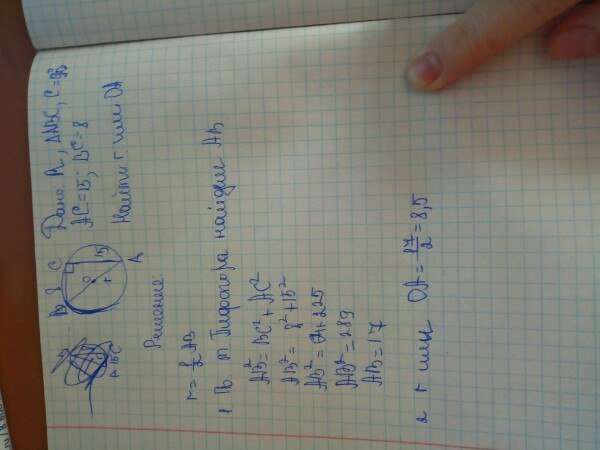 Дано: R, ΔABC, C=90
AC=15; BC=8
Найти r или OA
B 8 C
O
15
r
A
Решение
r = 1/2 AB
1 По т Пифагора найдем AB
AB² = BC² + AC²
AB² = 8² + 15²
AB² = 64+225
AB² = 289
AB = 17
2 r или OA = 17/2 = 8,5